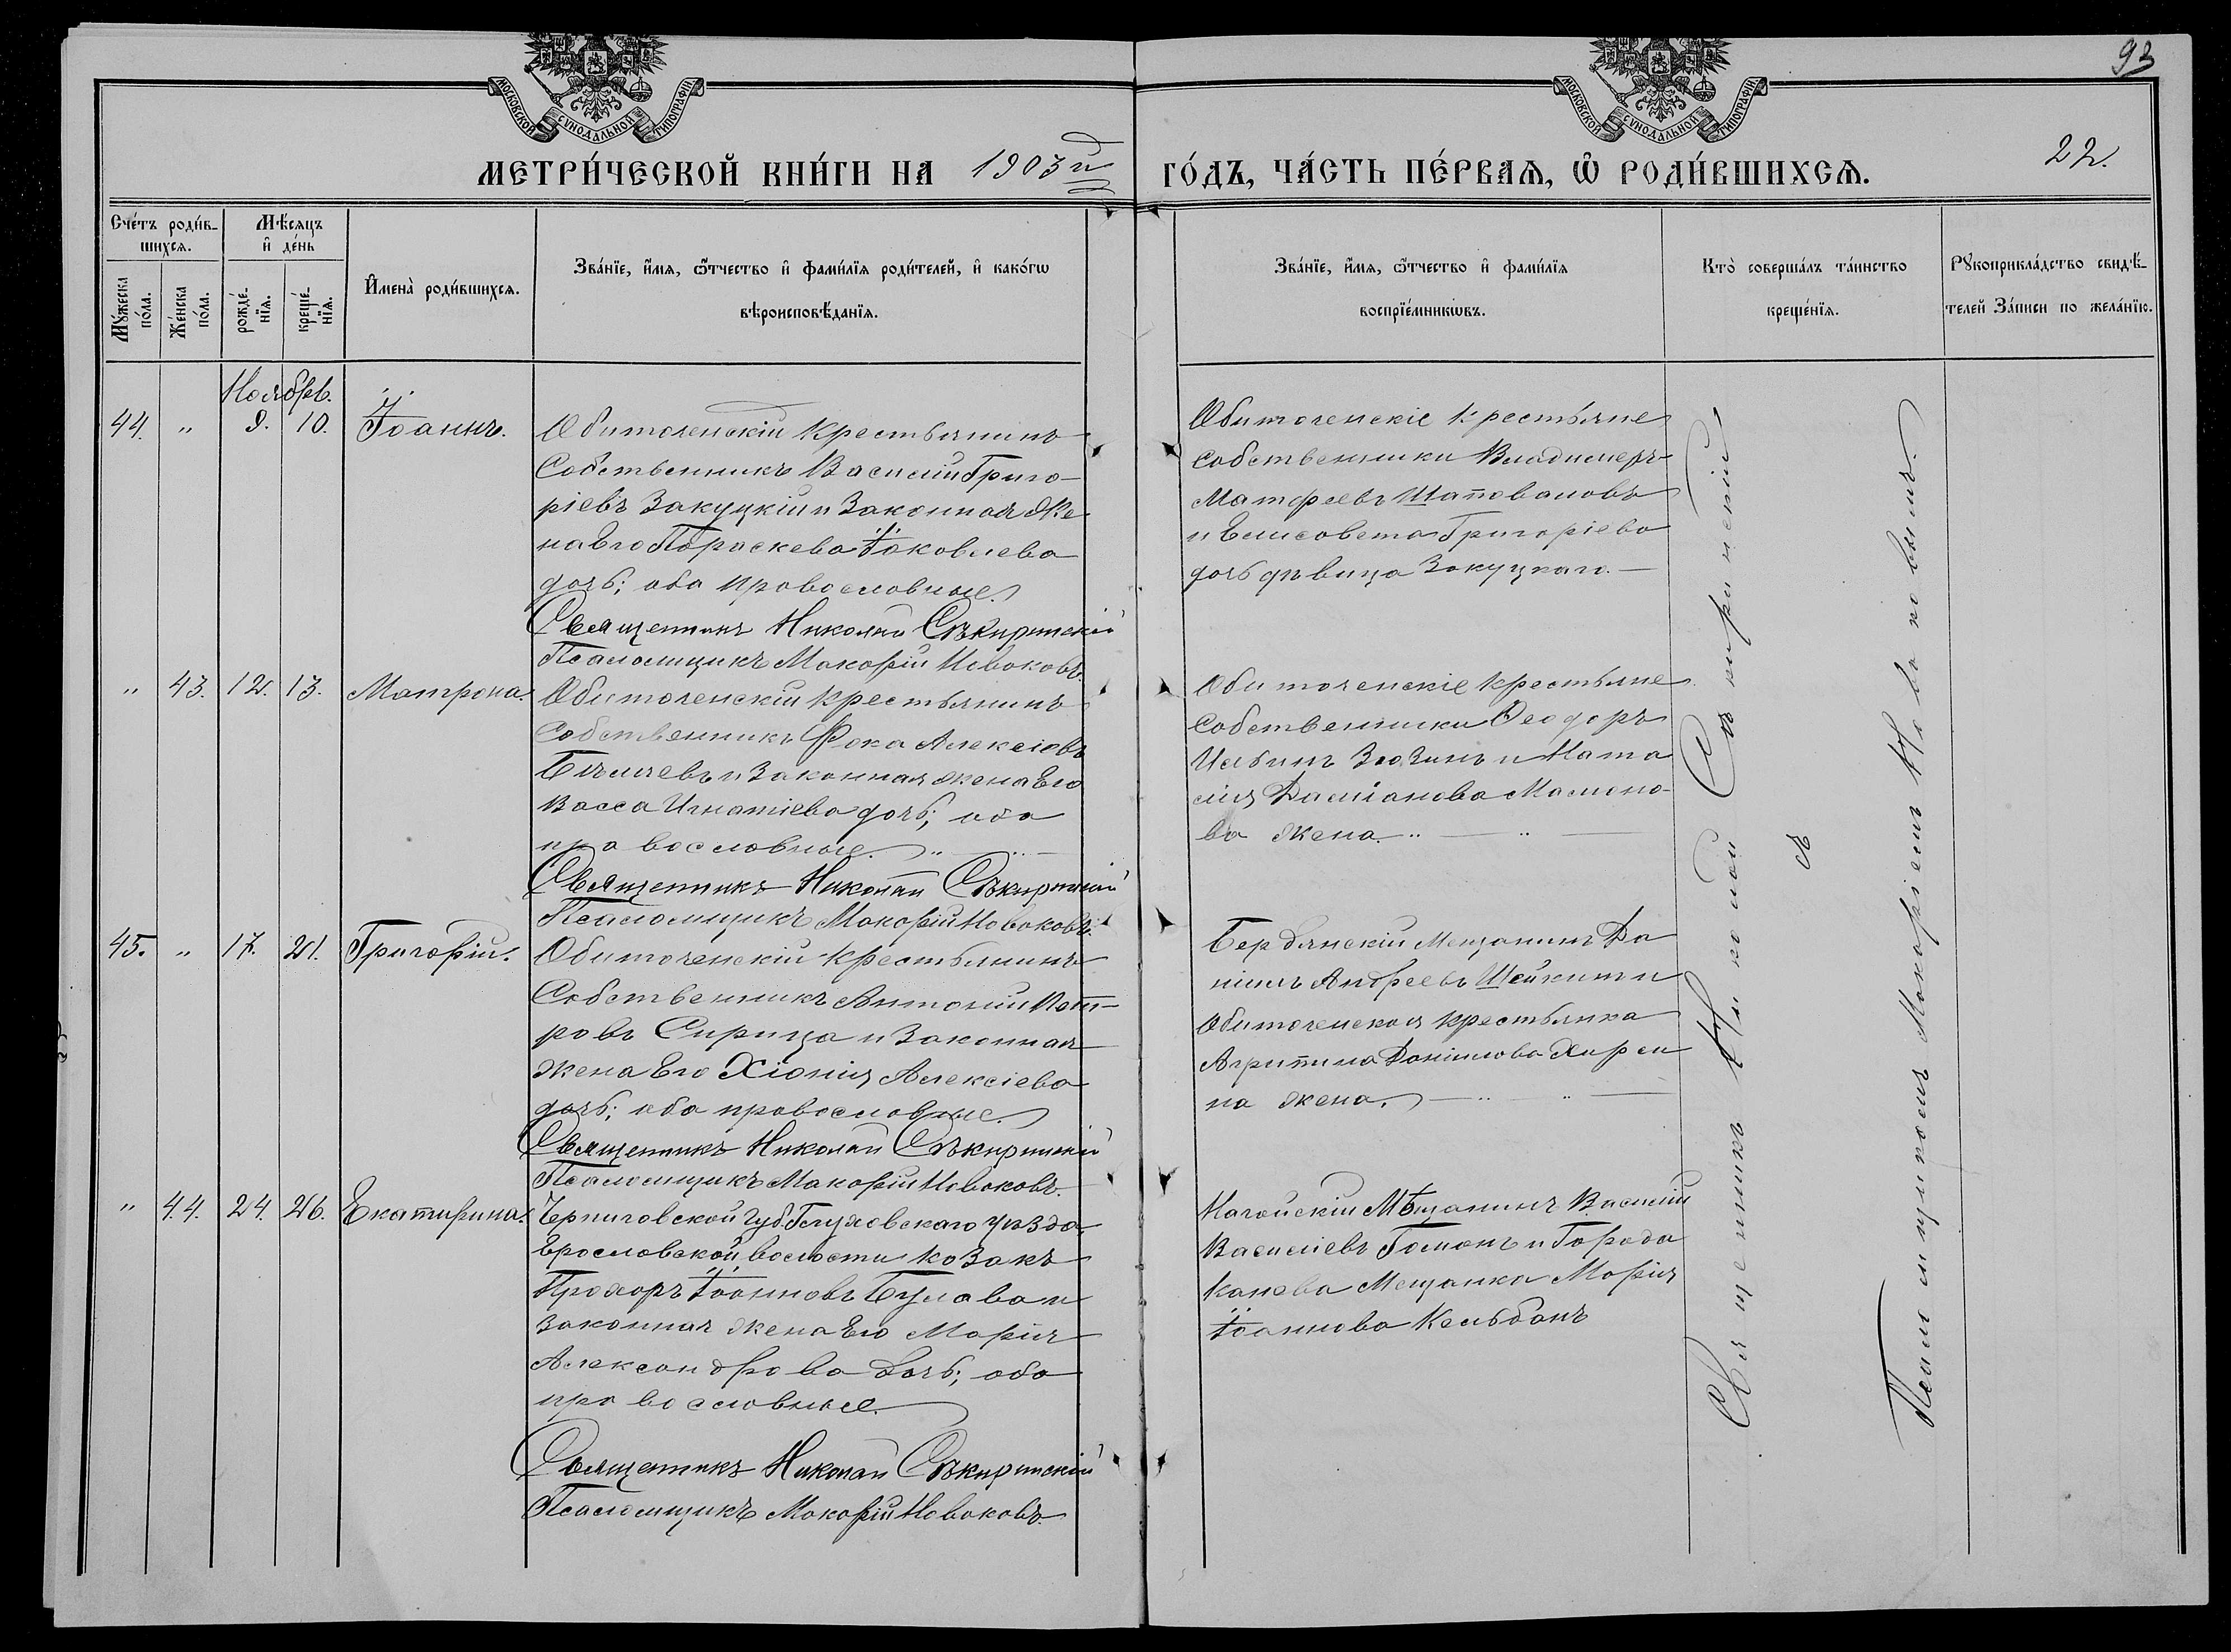 93
МОСКОВСКОЙ СѴНОДАЛЬНОЙ ТИПОГРАФІИ
МОСКОВСКОЙ СѴНОДАЛЬНОЙ ТИПОГРАФІИ
МЕТРИ́ЧЕСКОЙ КНИ́ГИ НА 1903й ГО́ДЪ, ЧА́СТЬ ПЕ́РВАѦ, Ѡ҆ РОДИ́ВШИХСѦ.
22.
Сче́тъ роди́в-
шихсѧ.
Мѣ́сѧцъ
и҆ де́нь
Мꙋ́жеска
по́ла.
Же́нска
по́ла.
рожде́-
нїѧ.
креще́-
нїѧ.
И҆мена̀ роди́вшихсѧ.
Зва́нїе, и҆́мѧ, ѻ҆́тчество и҆ фами́лїѧ роди́телей, и҆ како́гѡ
вѣроисповѣ́данїѧ.
Зва́нїе, и҆́мѧ, ѻ҆́тчество и҆ фами́лїѧ
воспрїе́мникѡвъ.
Кто̀ соверша́лъ та́инство
креще́нїѧ.
Рꙋкоприкла́дство свидѣ́-
телей За́писи по жела́нїю.
Ноябрь.
44. " 9. 10. Іоаннъ.
Обиточенскій Крестьянинъ
Собственникъ Василій Григо-
ріевъ Закуцкій и Законная Же
на Его Параскева Іаковлева
дочь; оба православные.
Священникъ Николай Сѣкиринскій
Псаломщикъ Макарій Новаковъ.
Обиточенскіе Крестьяне
Собственники Владимеръ
Матфеевъ Шаповаловъ
и Елисавета Григоріева
дочь дѣвица Закуцкаго.
" 43. 12. 13. Матрона.
Обиточенскій Крестьянинъ
Собственникъ Фока Алексіевъ
Бѣличевъ и Законная жена Его
Васса Игнатіева дочь; оба
православные.
Священникъ Николай Сѣкиринскій
Псаломщикъ Макарій Новаковъ.
Обиточенскіе Крестьяне
Собственники Ѳеодоръ
Зюзинъ и Ната
лія Даміанова Мамоно-
ва жена.
45. " 17. 21. Григорій.
Обиточенскій Крестьянинъ
Собственникъ Антоній Пет-
ровъ Сирица и Законная
жена Его Хіонія Алексіева
дочь; оба православные.
Священникъ Николай Сѣкиринскій
Псаломщикъ Макарій Новаковъ.
Бердянскій Мещанинъ Да
ніилъ Андреевъ и
Обиточенская Крестьянка
Агрипина Даніилова
на жена.
" 44. 24. 26. Екатирина.
Черниговской Губ. Глуховскаго уѣзда,
Ярославской волости Козакъ
Прохоръ Іоанновъ Булава и
Законная жена Его Марія
Александрова Дочь; оба
православные.
Священникъ Николай Сѣкиринскій
Псаломщикъ Макарій Новаковъ.
Ногайскій Мѣщанинъ Василій
Василіевъ Гоманъ и Города
Канева Мещанка Марія
Іоаннова Кельбанъ
Священникъ Николай Сѣкиринскій
съ
Псаломщикомъ Макаріемъ Новаковымъ.